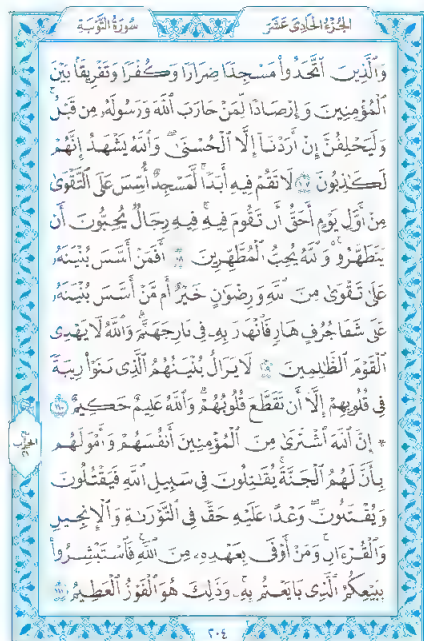 الجزء الحادي عشر
سورة التوبة
وَٱلَّذِينَ ٱتَّخَذُوا۟ مَسْجِدًا ضِرَارًا وَكُفْرًا وَتَفْرِيقًۢا بَيْنَ
ٱلْمُؤْمِنِينَ وَإِرْصَادًا لِّمَنْ حَارَبَ ٱللَّهَ وَرَسُولَهُۥ مِن قَبْلُ
وَلَيَحْلِفُنَّ إِنْ أَرَدْنَآ إِلَّا ٱلْحُسْنَىٰ وَٱللَّهُ يَشْهَدُ إِنَّهُمْ
لَكَٰذِبُونَ ١٠٧ لَا تَقُمْ فِيهِ أَبَدًا لَّمَسْجِدٌ أُسِّسَ عَلَى ٱلتَّقْوَىٰ
مِنْ أَوَّلِ يَوْمٍ أَحَقُّ أَن تَقُومَ فِيهِ فِيهِ رِجَالٌ يُحِبُّونَ أَن
يَتَطَهَّرُوا۟ وَٱللَّهُ يُحِبُّ ٱلْمُطَّهِّرِينَ ١٠٨ أَفَمَنْ أَسَّسَ بُنْيَٰنَهُۥ
عَلَىٰ تَقْوَىٰ مِنَ ٱللَّهِ وَرِضْوَٰنٍ خَيْرٌ أَم مَّنْ أَسَّسَ بُنْيَٰنَهُۥ
عَلَىٰ شَفَا جُرُفٍ هَارٍ فَٱنْهَارَ بِهِۦ فِى نَارِ جَهَنَّمَ وَٱللَّهُ لَا يَهْدِى
ٱلْقَوْمَ ٱلظَّٰلِمِينَ ١٠٩ لَا يَزَالُ بُنْيَٰنُهُمُ ٱلَّذِى بَنَوْا۟ رِيبَةً
فِى قُلُوبِهِمْ إِلَّآ أَن تَقَطَّعَ قُلُوبُهُمْ وَٱللَّهُ عَلِيمٌ حَكِيمٌ ١١٠
۞ إِنَّ ٱللَّهَ ٱشْتَرَىٰ مِنَ ٱلْمُؤْمِنِينَ أَنفُسَهُمْ وَأَمْوَٰلَهُم
بِأَنَّ لَهُمُ ٱلْجَنَّةَ يُقَٰتِلُونَ فِى سَبِيلِ ٱللَّهِ فَيَقْتُلُونَ
وَيُقْتَلُونَ وَعْدًا عَلَيْهِ حَقًّا فِى ٱلتَّوْرَىٰةِ وَٱلْإِنجِيلِ
وَٱلْقُرْءَانِ وَمَنْ أَوْفَىٰ بِعَهْدِهِۦ مِنَ ٱللَّهِ فَٱسْتَبْشِرُوا۟
بِبَيْعِكُمُ ٱلَّذِى بَايَعْتُم بِهِۦ وَذَٰلِكَ هُوَ ٱلْفَوْزُ ٱلْعَظِيمُ ١١١
الحزب
٢١
٢٠٤